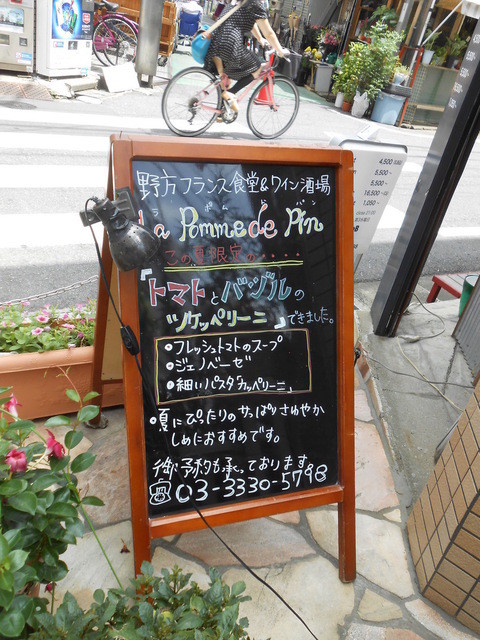 野方フランス食堂&ワイン酒場
ラ ポム ド パン
La Pomme de Pin
この夏限定の・・・・
「トマトとバジルの
ツケッペリーニ」できました。
・フレッシュトマトのスープ
・ジェノベーゼ
・細いパスタ カッペリーニ
・夏にぴったりのサッぱりさわやか
しめにおすすめです。
御予約も承っております。
03-3330-5798
4,500
5,500
5,500
16,500
1,050